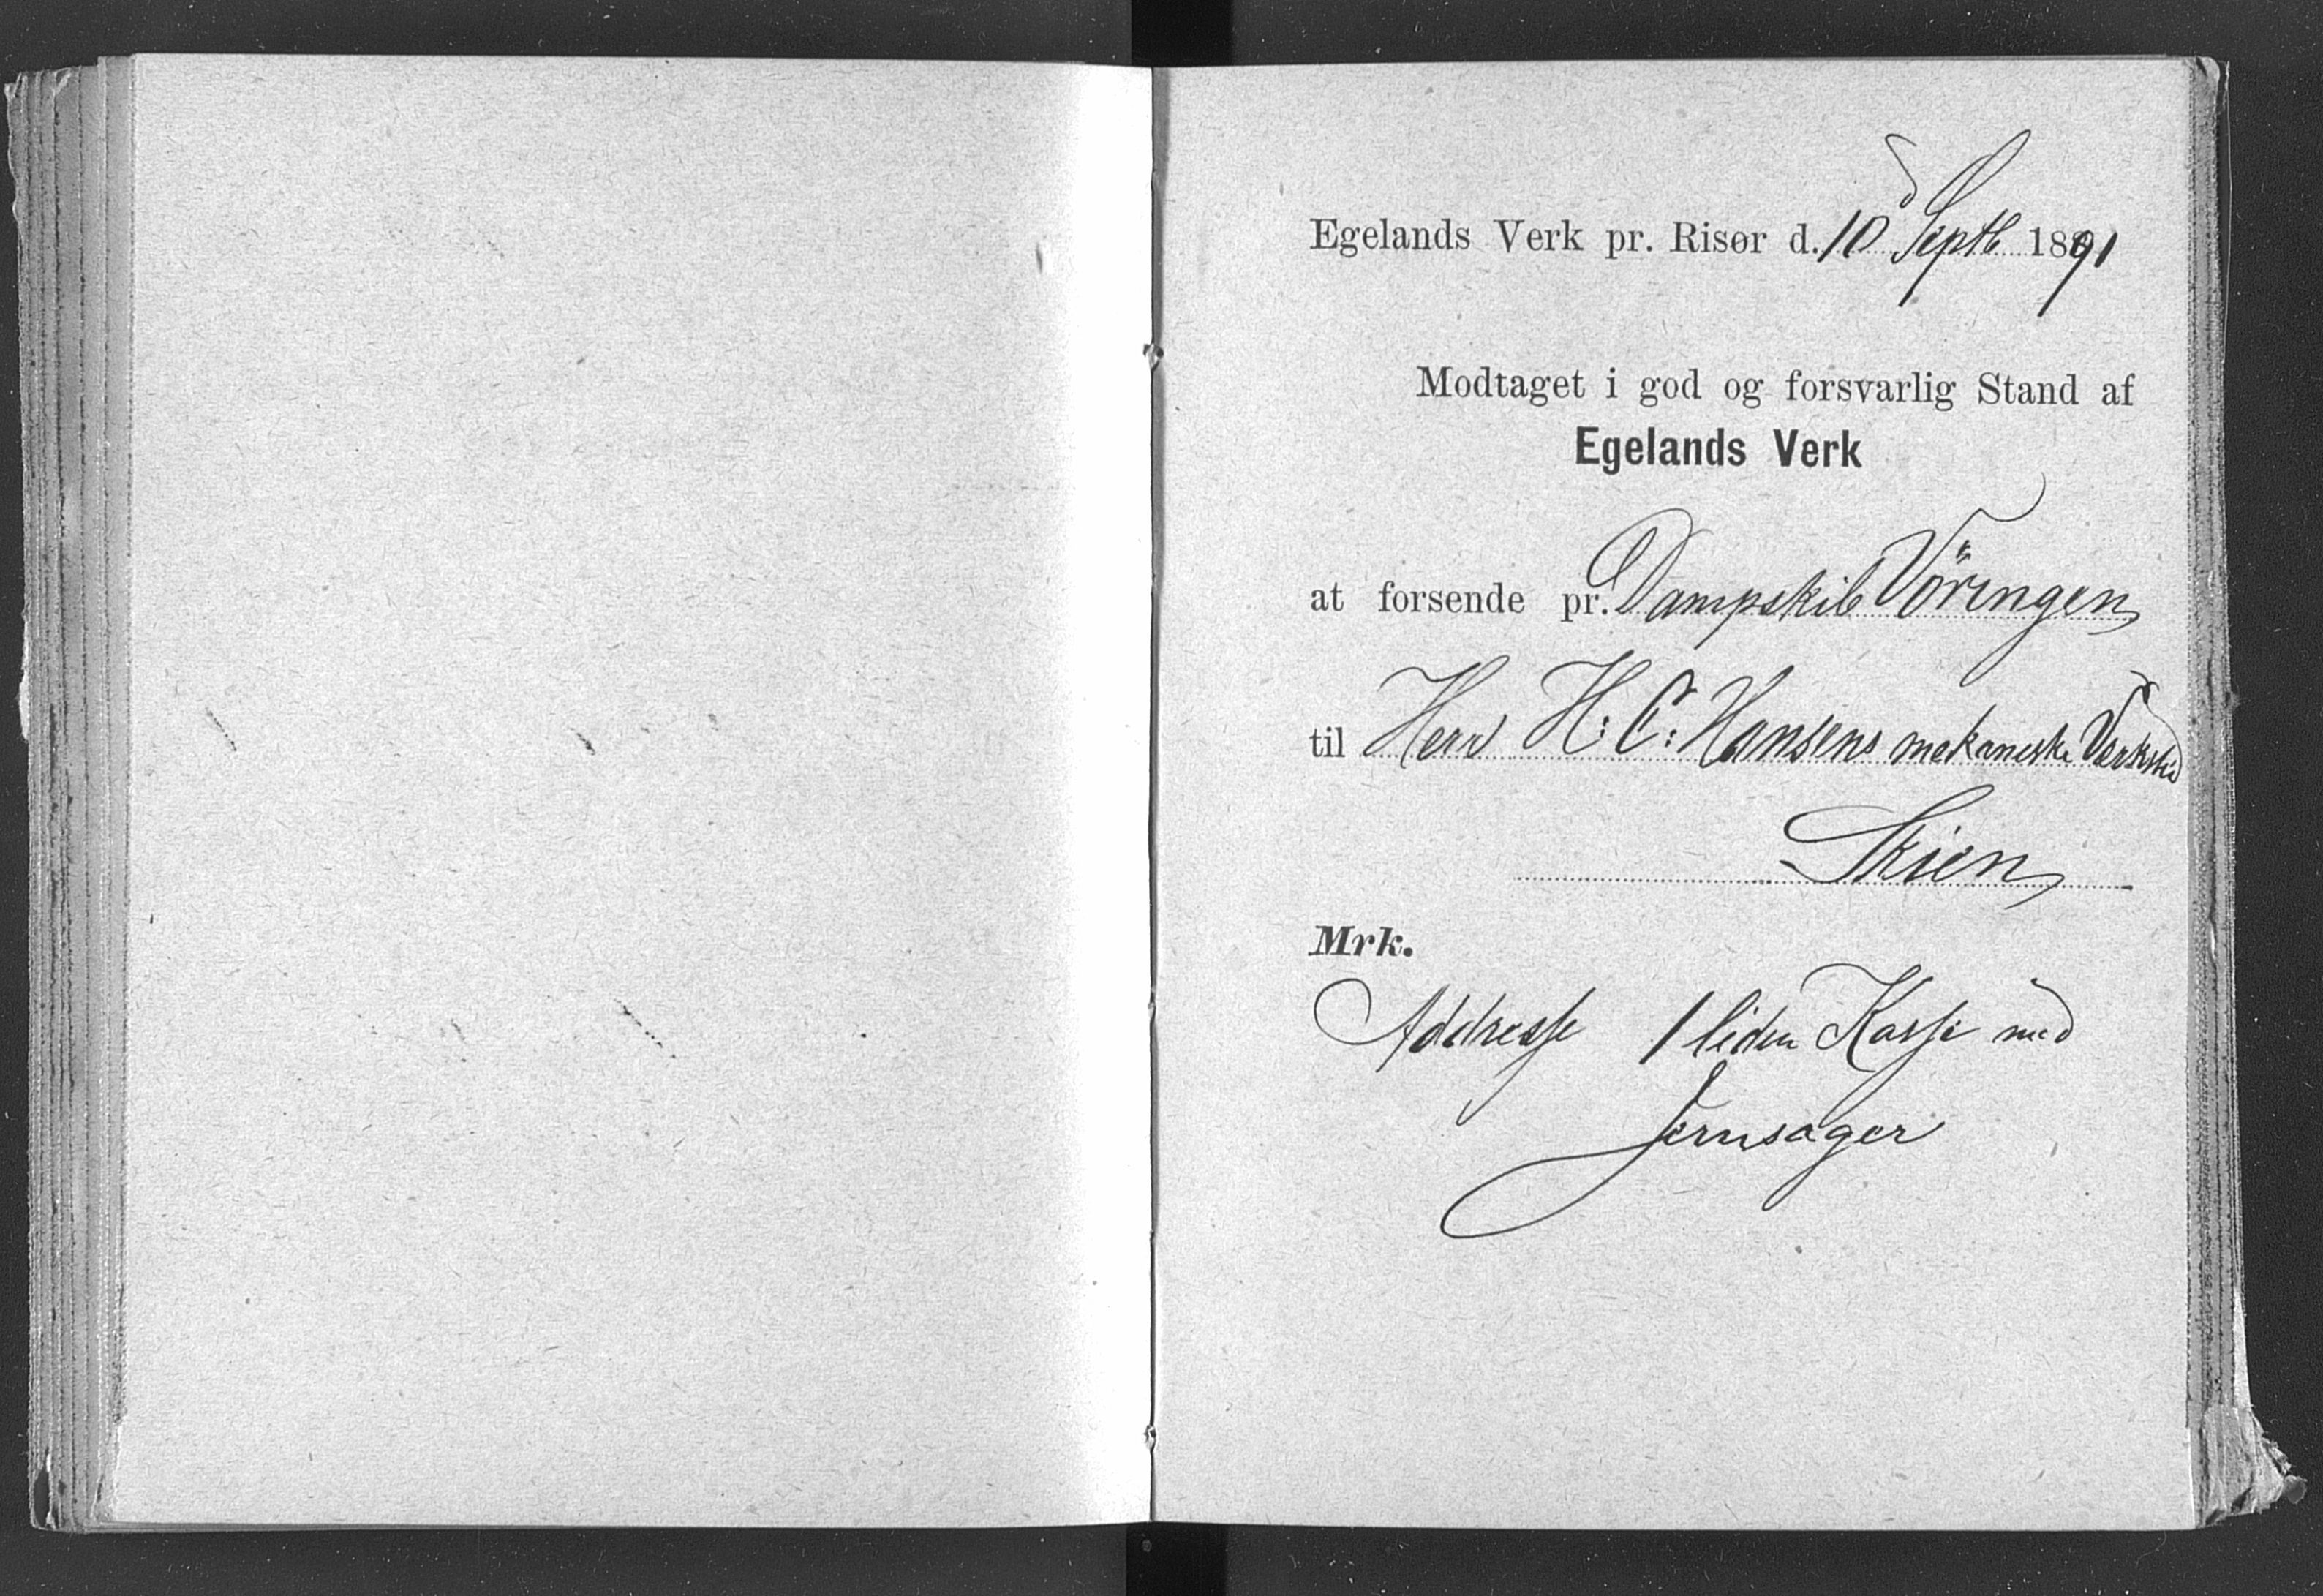 Egelands Verk pr. Risør d. 10 Septb 1891
Modtaget i god og forsvarlig Stand af
Egelands Verk
at forsende pr. Dampskib Vöringen
til Herr H: C: Hansens mekaniske Værksted
Skien
Mrk.
Addresse 1 liden Kasse med
Jernsager